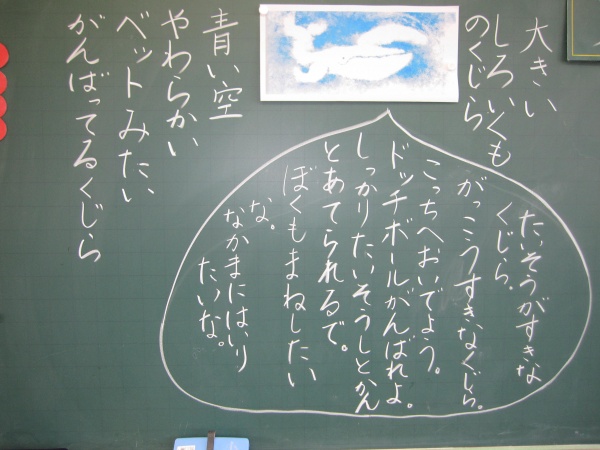 大きい
しろいくも
のくじら
青い空
やわらかい
ベットみたい
がんばってるくじら
たいそうがすきな
くじら。
がっこうすきなくじら。
こっちへおいでよう。
ドッチボールがんばれよ。
しっかりたいそうしとかん
とあてられるで。
ぼくもまねしたい
な。
なかまにはいり
たいな。